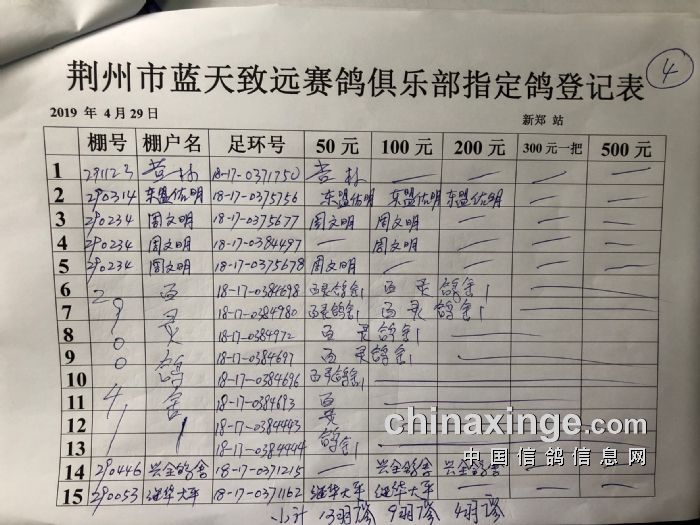 荆州市蓝天致远赛鸽俱乐部指定鸽登记表 ④
2019 年 4月29日 新郑 站
棚号 棚户名 足环号 50 元 100 元 200 元 300元一把 500 元
1 18-17-0371750 — — — —
2 290314 东盟佑明 18-17-0375756 东盟佑明 东盟佑明 东盟佑明 — —
3 290234 周文明 18-17-0375677 周文明 周文明 — — —
4 290234 周文明 18-17-0384497 — 周文明 — — —
5 290234 周文明 18-17-0375678 周文明 — — — —
6 18-17-0384698
7 18-17-0384980
8 18-17-0384972
9 18-17-0384697
10 18-17-0384696
11 18-17-0384693
12 18-17-0384443
13 18-17-0384444
14 290446 兴全鸽舍 18-17-0371215 — 兴全鸽舍 兴全鸽舍 — —
15 290053 继华大平 18-17-0371162 继华大平 继华大平 — — —
小计 13羽 9羽 4羽
chinaxinge.com
中国信鸽信息网